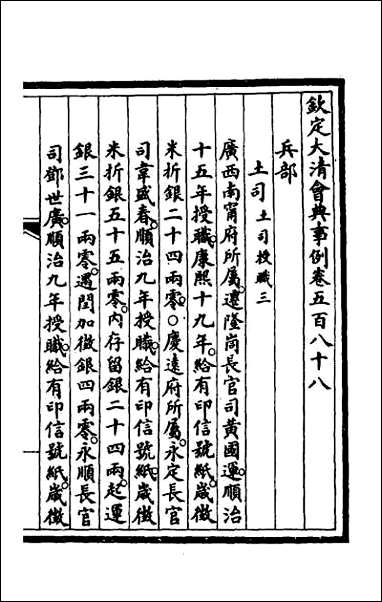 欽定大清會典事例卷五百八十八
兵部
土司土司授職三
廣西南甯府所屬。遷隆峝長官司黃國運。順治
十五年授職。康熙十九年。給有印信號紙。歲徵
米折銀二十四兩零。○慶遠府所屬。永定長官
司韋盛春。順治九年授職。給有印信號紙。歲徵
米折銀五十五兩零。內存留銀二十四兩。起運
銀三十一兩零。遇閏加徵銀四兩零。永順長官
司鄧世廣。順治九年授職。給有印信號紙。歲徵